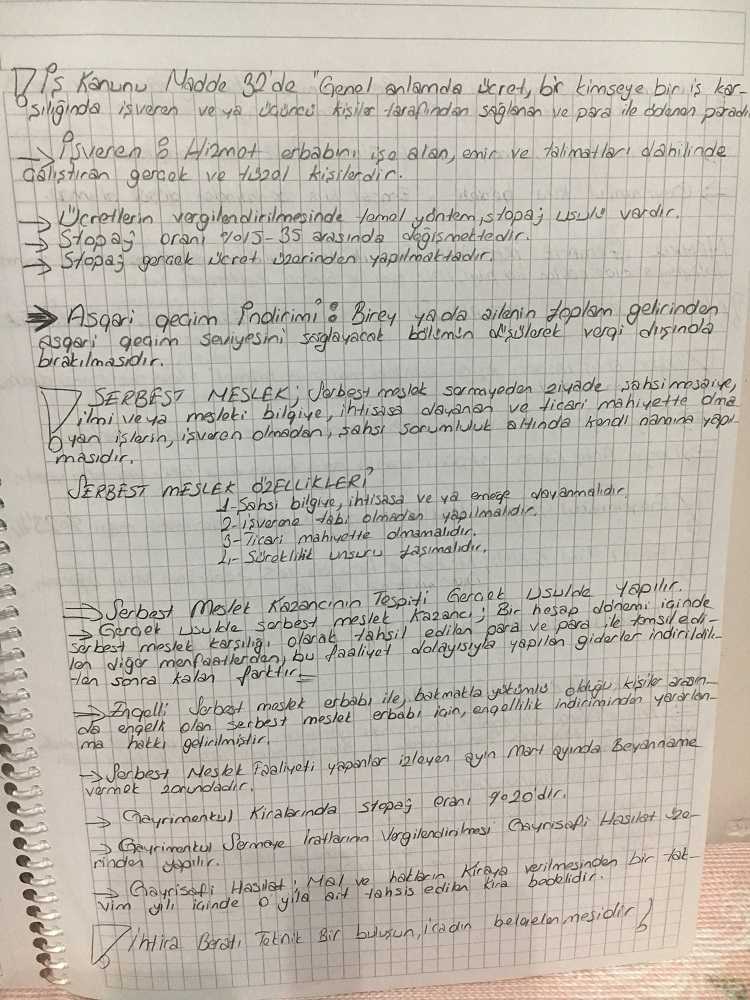 İş Kanunu Madde 32'de "Genel anlamda ücret, bir kimseye bir iş kar-
şılığında işveren ve ya üçüncü kişiler tarafından sağlanan ve para ile ödenen paradı
→ İşveren : Hizmet erbabını işe alan, emir ve talimatları dahilinde
çalıştıran gerçek ve tüzel kişilerdir.
→ Ücretlerin vergilendirilmesinde temel yöntem, stopaj usulü vardır.
→ Stopaj oranı %15-35 arasında değişmektedir.
→ Stopaj gerçek ücret üzerinden yapılmaktadır.
→ Asgari geçim İndirimi : Birey yada ailenin toplam gelirinden
asgari geçim seviyesini sağlayacak bölümün düşülerek vergi dışında
bırakılmasıdır.
SERBEST MESLEK; Serbest meslek sermayeden ziyade şahsi mesaiye,
ilmi veya mesleki bilgiye, ihtisasa dayanan ve ticari mahiyette olma
yan işlerin, işveren olmadan, şahsi sorumluluk altında kendi namına yapıl
masıdır.
SERBEST MESLEK ÖZELLİKLERİ?
1-Şahsi bilgiye, ihtisasa ve ya emeğe dayanmalıdır.
2-işverene tabi olmadan yapılmalıdır.
3-Ticari mahiyette olmamalıdır.
4- Süreklilik unsuru taşımalıdır.
→ Serbest Meslek Kazancının Tespiti Gerçek Usulde yapılır.
→ Gerçek usulde serbest meslek kazancı; Bir hesap dönemi içinde
serbest meslek karşılığı olarak tahsil edilen para ve para ile temsil edi-
len diğer menfaatlerden, bu faaliyet dolayısıyla yapılan giderler indirildik-
ten sonra kalan farktır.
→ Engelli Serbest meslek erbabı ile, bakmakla yükümlü olduğu kişiler arasın-
da engelli olan serbest meslek erbabı için, engellilik indiriminden yararlan-
ma hakkı getirilmiştir.
→ Serbest Meslek Faaliyeti yapanlar izleyen ayın Mart ayında Beyanname
vermek zorundadır.
→ Gayrimenkul Kiralarında stopaj oranı %20'dir.
→ Gayrimenkul Sermaye İratlarının Vergilendirilmesi Gayrisafi Hasılat üze-
rinden yapılır.
→ Gayrisafi Hasılat; Mal ve hakların Kiraya verilmesinden bir tak-
vim yılı içinde o yıla ait tahsis edilen kira bedelidir.
İhtira Beratı Teknik Bir buluşun, icadın belgelenmesidir!